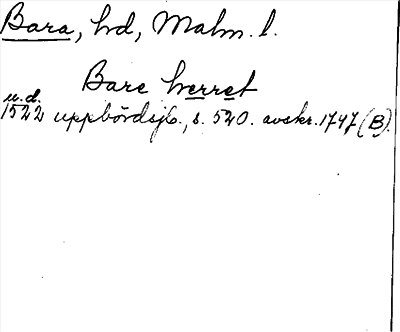 Bara, hd, Malm. l.
Bare herret
u.d.
1522 uppbördsjb., s. 520. avskr. 1747 (B).